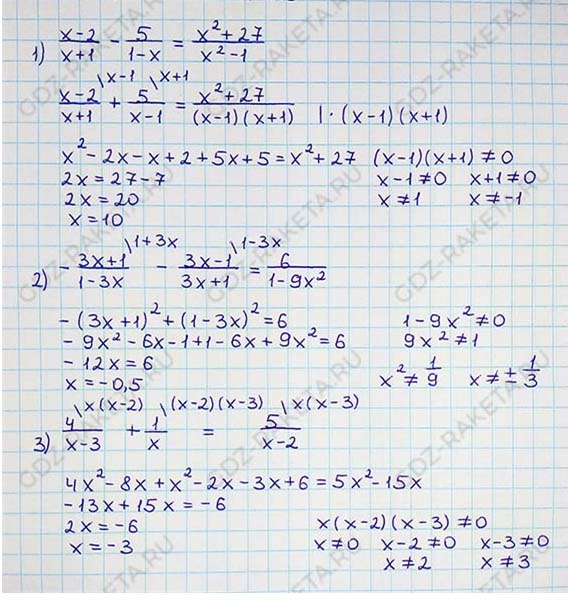 1) (x-2)/(x+1) - 5/(1-x) = (x²+27)/(x²-1)
(x-2)/(x+1) \x-1 + 5/(x-1) \x+1 = (x²+27)/((x-1)(x+1)) | · (x-1)(x+1)
x² - 2x - x + 2 + 5x + 5 = x² + 27 (x-1)(x+1) ≠ 0
2x = 27 - 7 x-1 ≠ 0 x+1 ≠ 0
2x = 20 x ≠ 1 x ≠ -1
x = 10
2) - (3x+1)/(1-3x) \1+3x - (3x-1)/(3x+1) \1-3x = 6/(1-9x²)
- (3x+1)² + (1-3x)² = 6 1-9x² ≠ 0
- 9x² - 6x - 1 + 1 - 6x + 9x² = 6 9x² ≠ 1
- 12x = 6 x² ≠ 1/9 x ≠ ± 1/3
x = -0,5
3) 4/(x-3) \x(x-2) + 1/x \(x-2)(x-3) = 5/(x-2) \x(x-3)
4x² - 8x + x² - 2x - 3x + 6 = 5x² - 15x
-13x + 15x = -6
2x = -6 x(x-2)(x-3) ≠ 0
x = -3 x ≠ 0 x-2 ≠ 0 x-3 ≠ 0
x ≠ 2 x ≠ 3
GDZ-RAKETA.RU